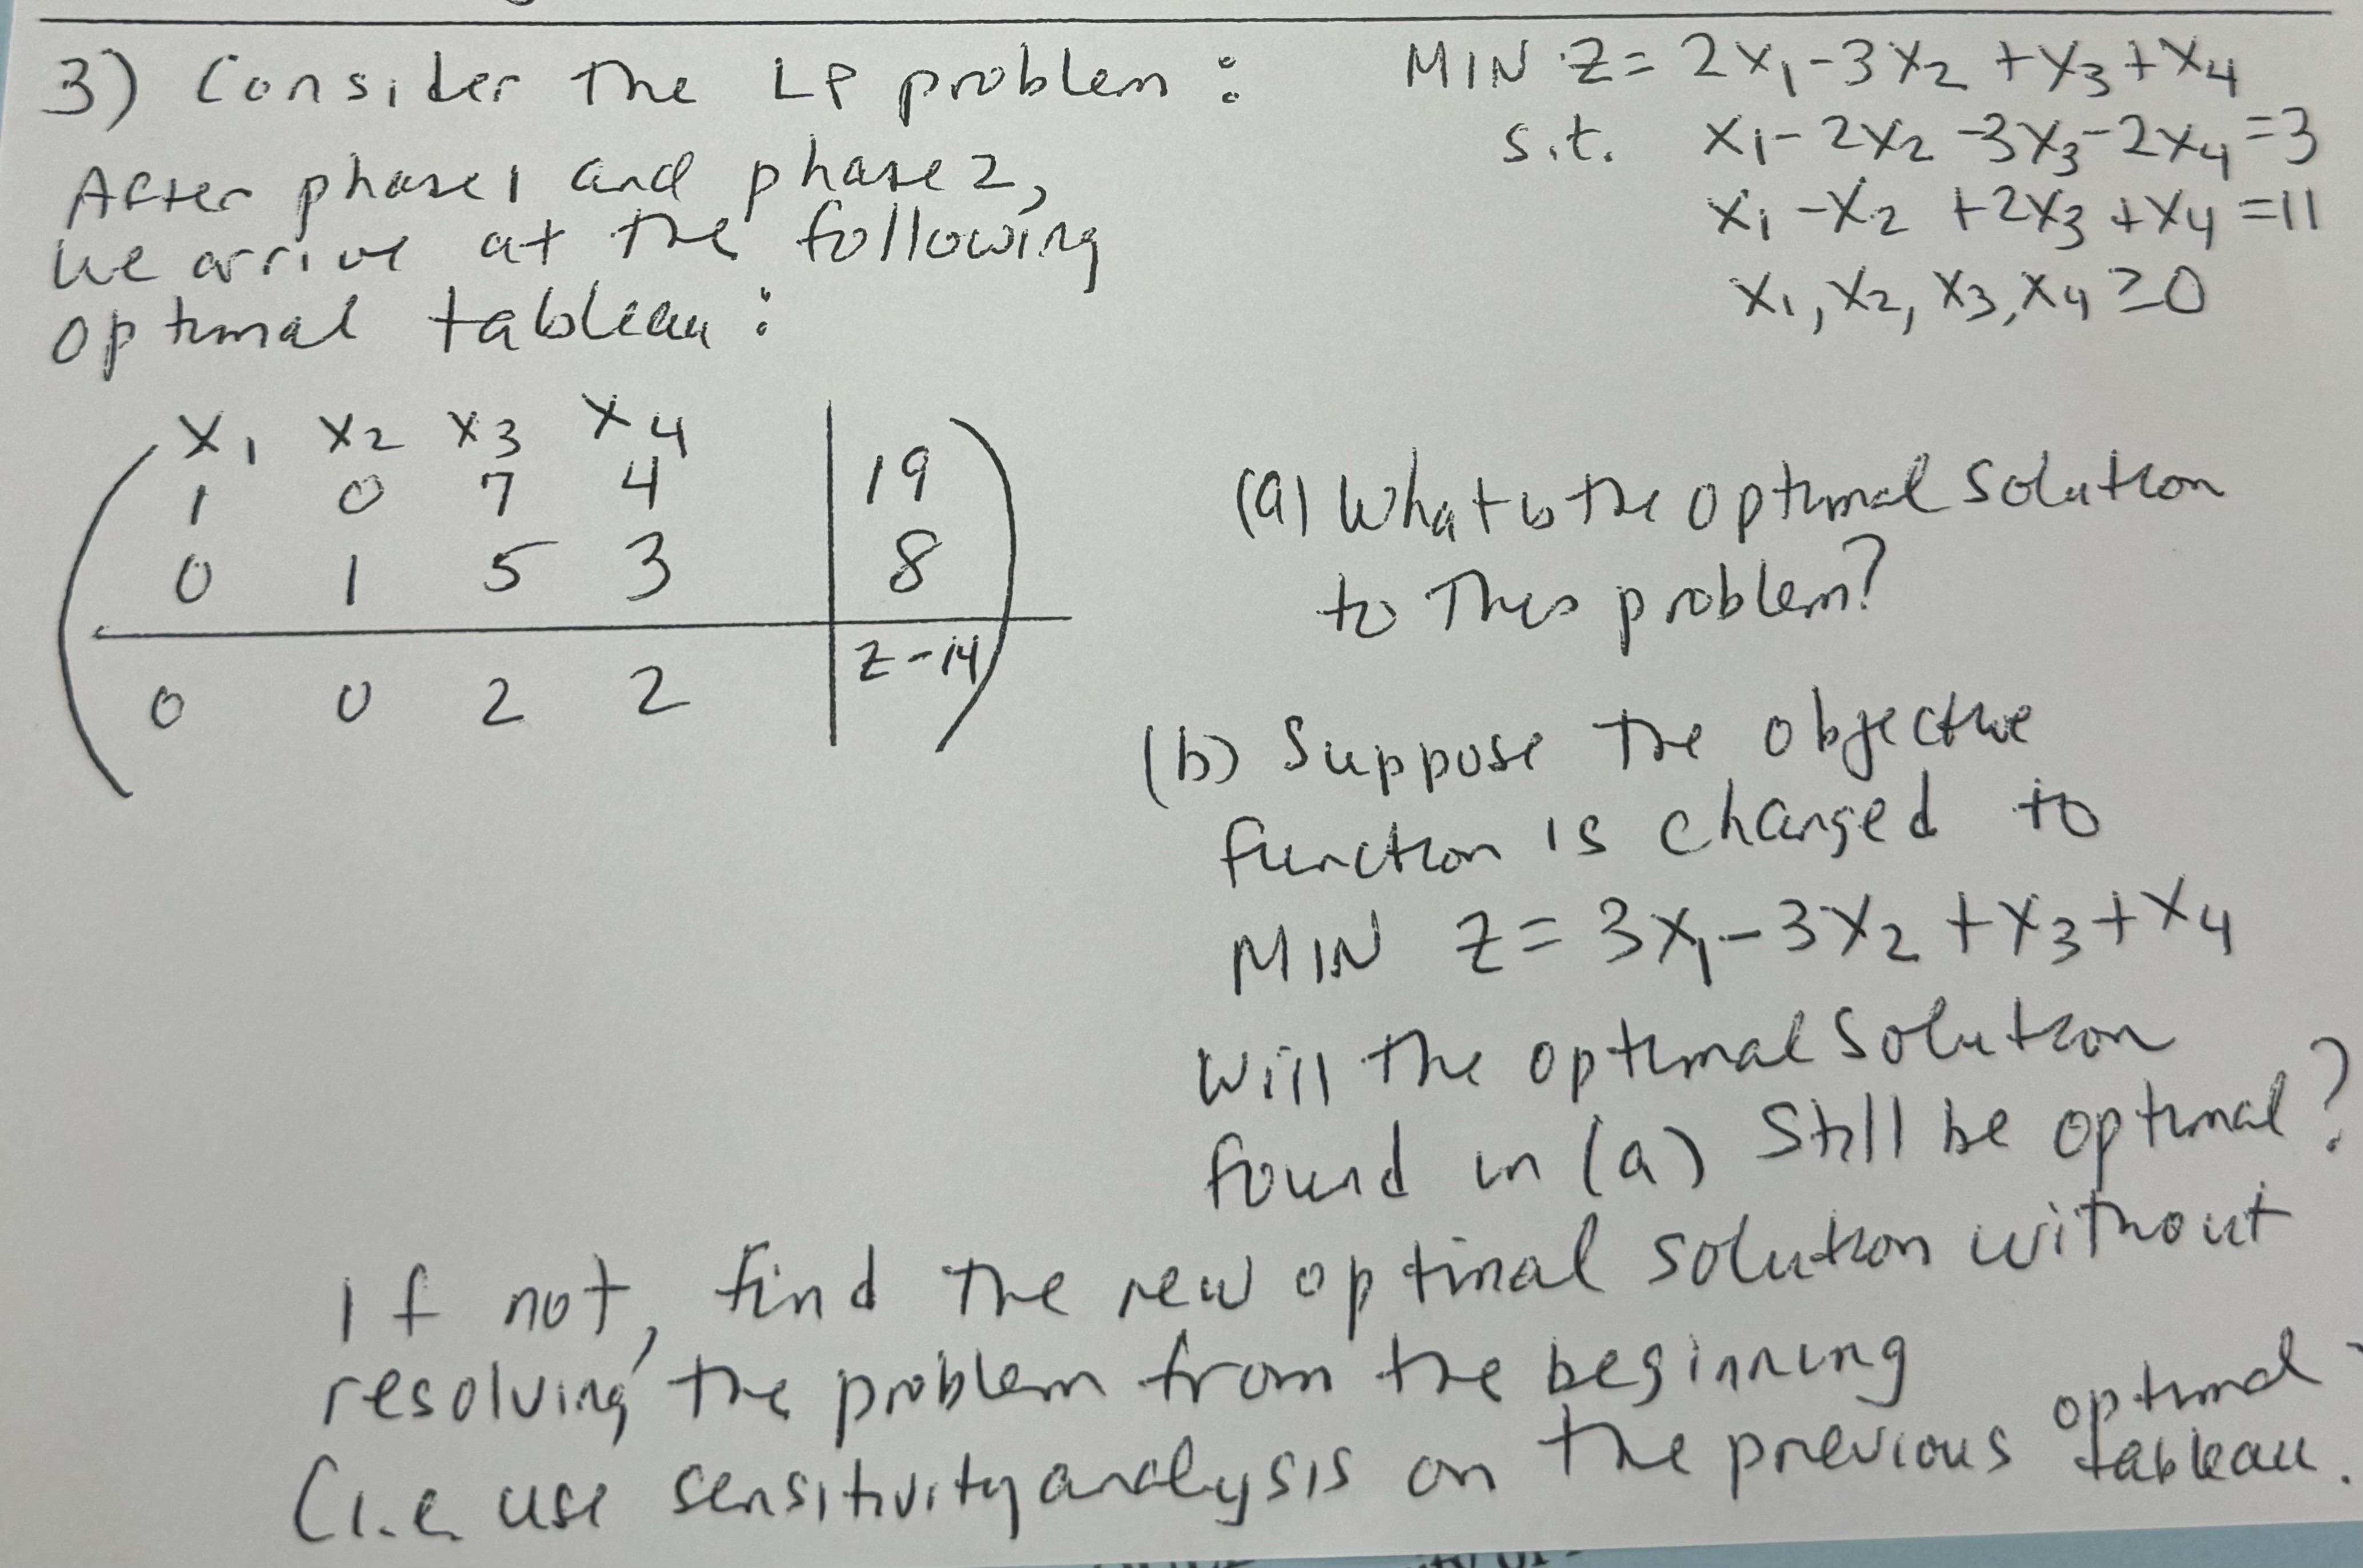 3) Consider the LP problem : MIN Z = 2x₁ - 3x₂ + x₃ + x₄
s.t. x₁ - 2x₂ - 3x₃ - 2x₄ = 3
x₁ - x₂ + 2x₃ + x₄ = 11
x₁, x₂, x₃, x₄ ≥ 0
After phase 1 and phase 2,
we arrive at the following
optimal tableau :
x₁ x₂ x₃ x₄
1 0 7 4 | 19
0 1 5 3 | 8
0 0 2 2 | z - 14
(a) What is the optimal solution
to this problem?
(b) Suppose the objective
function is changed to
MIN Z = 3x₁ - 3x₂ + x₃ + x₄
Will the optimal solution
found in (a) still be optimal?
If not, find the new optimal solution without
resolving the problem from the beginning
(i.e. use sensitivity analysis on the previous optimal
tableau.